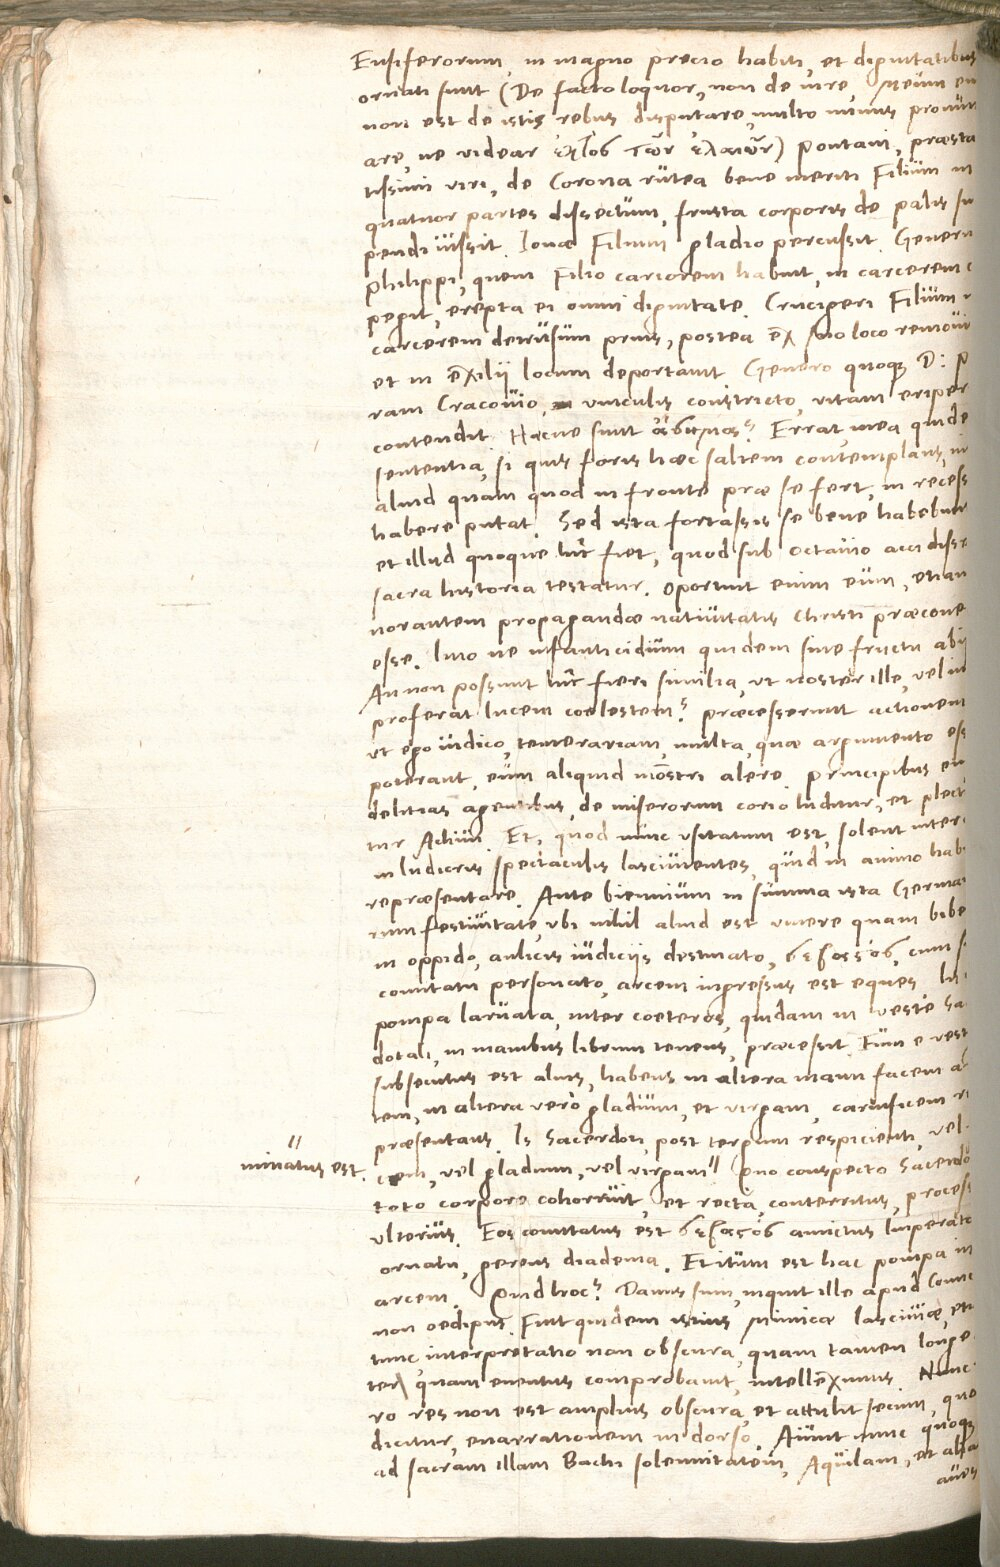 Ensiferorum, in magno precio habiti, et dignitatibus
ornati sunt (De facto loquor, non de iure. Meum en
non est de istis rebus disputare, multo minus pronun
are, ne videar ἐκτὸς τῶν ἐλαιῶν) Pontani, præsta
tissimi viri, de Corona rutea bene meriti Filium in
quatuor partes dissectum, frusta corporis de palis su
pendi iussit. Ionæ Filium gladio percussit. Generu
Philippi, quem Filio cariorem habuit, in carcerem c
pegit, erepta ei omni dignitate. Crucigeri Filium i
carcerem detrusum prius, postea ex suo loco remouit
et in exilij locum deportauit Genero quoque D: P
ram Cracouio, vinculis constricto, vitam eriper
contendit. Hæcne sunt Errat mea quide
sententia, si quis foris hæc saltem contemplans, in
aliud quam quod in fronte præ se fert, in recess
habere putat. Sed ista fortassis se bene habebunt
et illud quoque huc fiet, quod sub Octauio accidiss
sacra historia testatur. Oportuit enim eum, etiam
norantem propagandæ natiuitatis Christi præcone
esse. Imo ne infanticidium quidem sine fructu abij
An non possunt huc fieri similia, ut noster ille, vel in
proferat lucem coelestem? præcesserunt actionem
ut ego iudico, temerariam, multa, quæ argumento ess
poterant, eum aliquid monstri alere. Principibus en
delitias agentibus, de miserorum corio luditur, et plect
tur Achiui. Et, quod nunc usitatum est, solent inter
in ludicris spectaculis lasciuientes, quid in animo hab
repræsentare. Ante biennium in summa ista German
rum festiuitate, ubi nihil aliud est viuere quam bibe
in oppido, aulicis iudicijs destinato, σεβαστὸς, cum s
comitatu personato, arcem ingressus est eques. In
pompa laruata, inter coeteros, quidam in veste Sa
dotali, in manibus librum tenens, præcessit. Eum e vest
subsecutus est alius, habens in altera manu facem a
tem, in altera vero gladium, et virgam, carnificem r
præsentans. Is Sacerdoti, post tergum respicienti, vel
minatus est.
cem, vel gladium, vel virgam Quo conspecto Sacerdo
toto corpore cohorruit, et recta, conterritus, process
ulterius. Eos comitatus est σεβαστὸς amictus Imperato
ornatu, gerens diadema. Et itum est hac pompa in
arcem. Quid hoc? Dauus sum, inquit ille apud Comic
non oedipus. Fuit quidem istius Mimicæ lasciuiæ, eti
tunc interpretatio non obscura, quam tamen longe
ter quam euentus comprobauit, intelleximus. Nunc
ro res non est amplius obscura, et attulit secum, quo
dicitur, enarrationem in dorso. Aiunt nunc quoque
ad sacram illam Bachi solemnitatem, Aquilam, et alia
aues